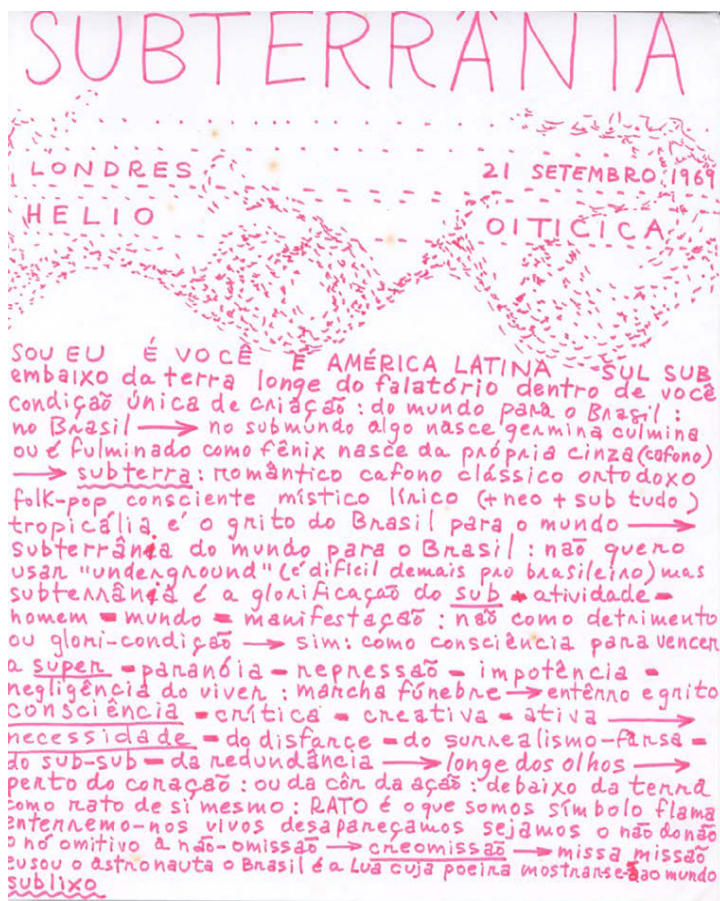 SUBTERRÂNIA
LONDRES 21 SETEMBRO 1969
HELIO OITICICA
SOU EU É VOCÊ É AMÉRICA LATINA SUL SUB
embaixo da terra longe do falatório dentro de você
condição única de criação : do mundo para o Brasil :
no Brasil → no submundo algo nasce germina culmina
ou é fulminado como fênix nasce da própria cinza (cafono)
→ subterra : romântico cafono clássico ortodoxo
folk-pop consciente místico lírico (+ neo + sub tudo )
tropicália é o grito do Brasil para o mundo →
subterrânia do mundo para o Brasil : não quero
usar "underground" (é difícil demais pro brasileiro) mas
subterrânia é a glorificação do sub - atividade -
homem - mundo - manifestação : não como detrimento
ou glori-condição → sim : como consciência para vencer
a super - paranóia - repressão - impotência -
negligência do viver : marcha fúnebre → entêrro e grito
consciência - crítica - creativa - ativa →
necessidade - do disfarce - do surrealismo-farsa -
do sub-sub - da redundância → longe dos olhos →
perto do coração : ou da côr da ação : debaixo da terra
como rato de si mesmo : RATO é o que somos símbolo flama
enterremo-nos vivos desapareçamos sejamos o não do não
o nó omitivo a não-omissão → creomissão → missa missão
eusou o astronauta o Brasil é a Lua cuja poeira mostrarse-á ao mundo
sublixo